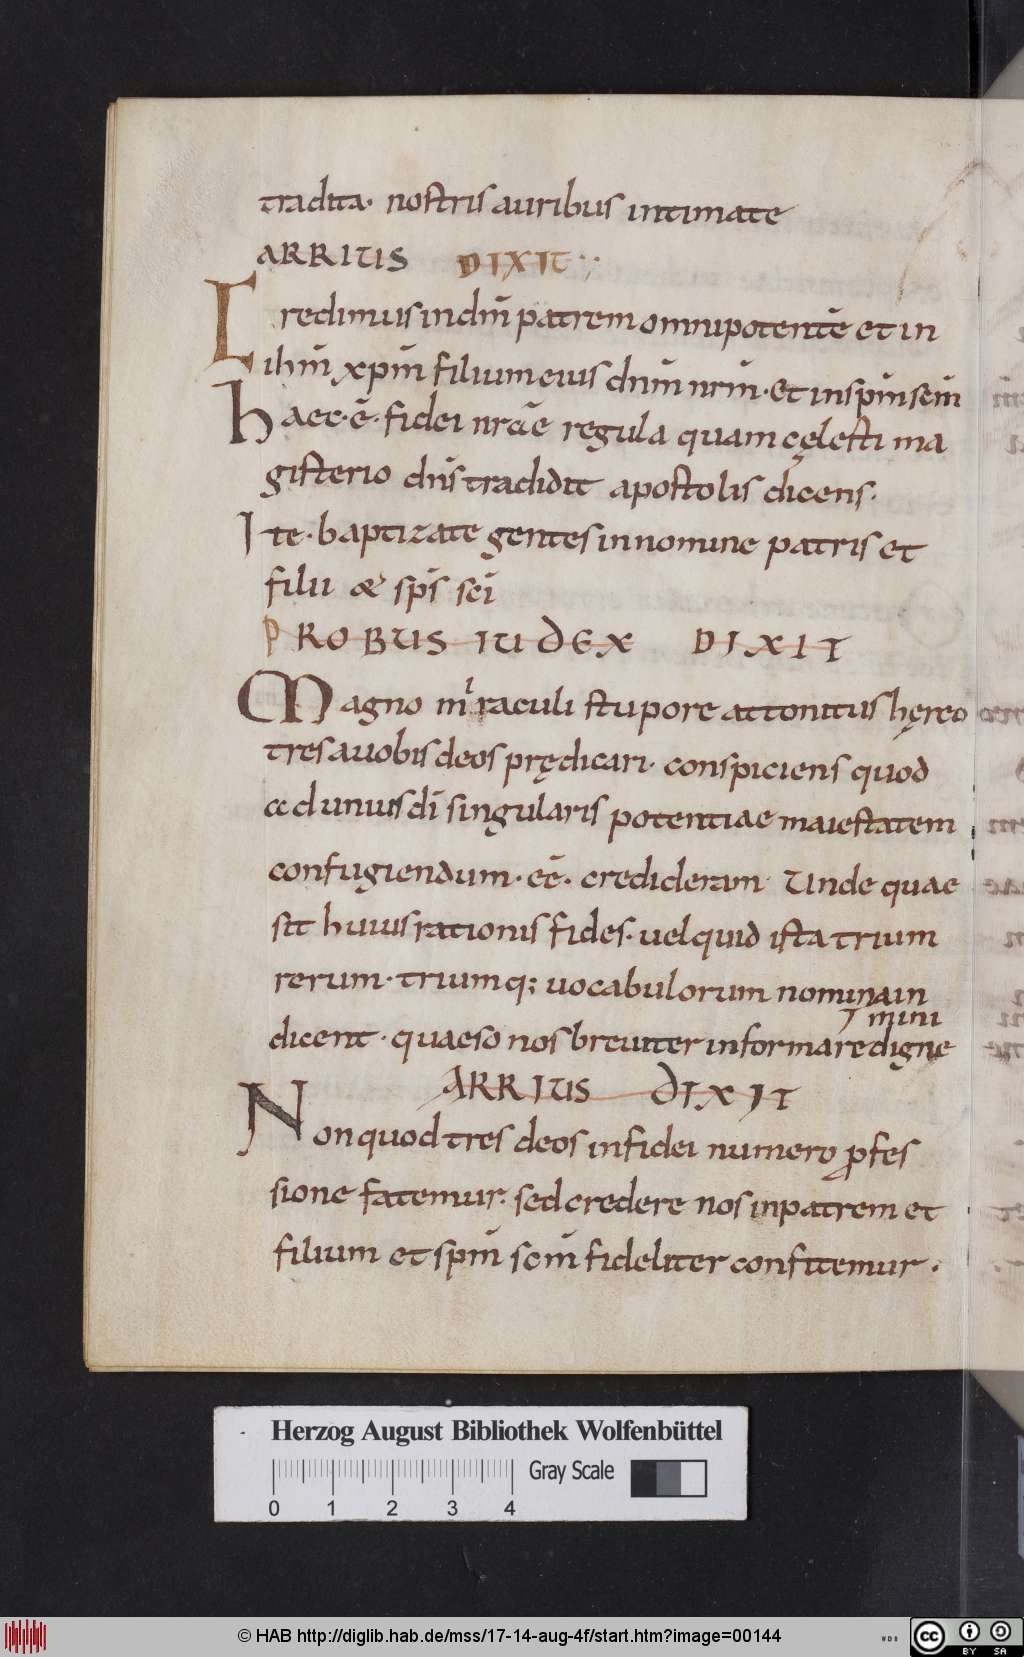 tradita· nostris auribus intimate
ARRIUS DIXIT··
Credimus in dm̅ patrem omnipotente̅ et in
ihm̅ xpm̅ filium eius dnm̅ nrm̅· et in spm̅ scm̅
haec· e̅· fidei nr̅ae regula quam cęlesti ma
gisterio dn̅s tradidit apostolis dicens·
Ite· baptizate gentes in nomine patris et
filii & sp̅s sc̅i
PROBUS IUDEX DIXIT
Magno miraculi stupore attonitus hęreo
tres a vobis deos prędicari· conspiciens quod
ad unius di̅ singularis potentiae maiestatem
confugiendum· ee̅· credideram Unde quae
sit huius rationis fides· uel quid ista trium
rerum· triumq; uocabulorum nomina in
dicent· quaeso nos breuiter informare digne
mini
ARRIUS DIXIT
Non quod tres deos in fidei numero ꝓfes
sione fatemur· sed credere nos in patrem et
filium et spm̅ scm̅ fideliter confitemur·
Herzog August Bibliothek Wolfenbüttel
Gray Scale
0 1 2 3 4
© HAB http://diglib.hab.de/mss/17-14-aug-4f/start.htm?image=00144
WDB
cc BY SA